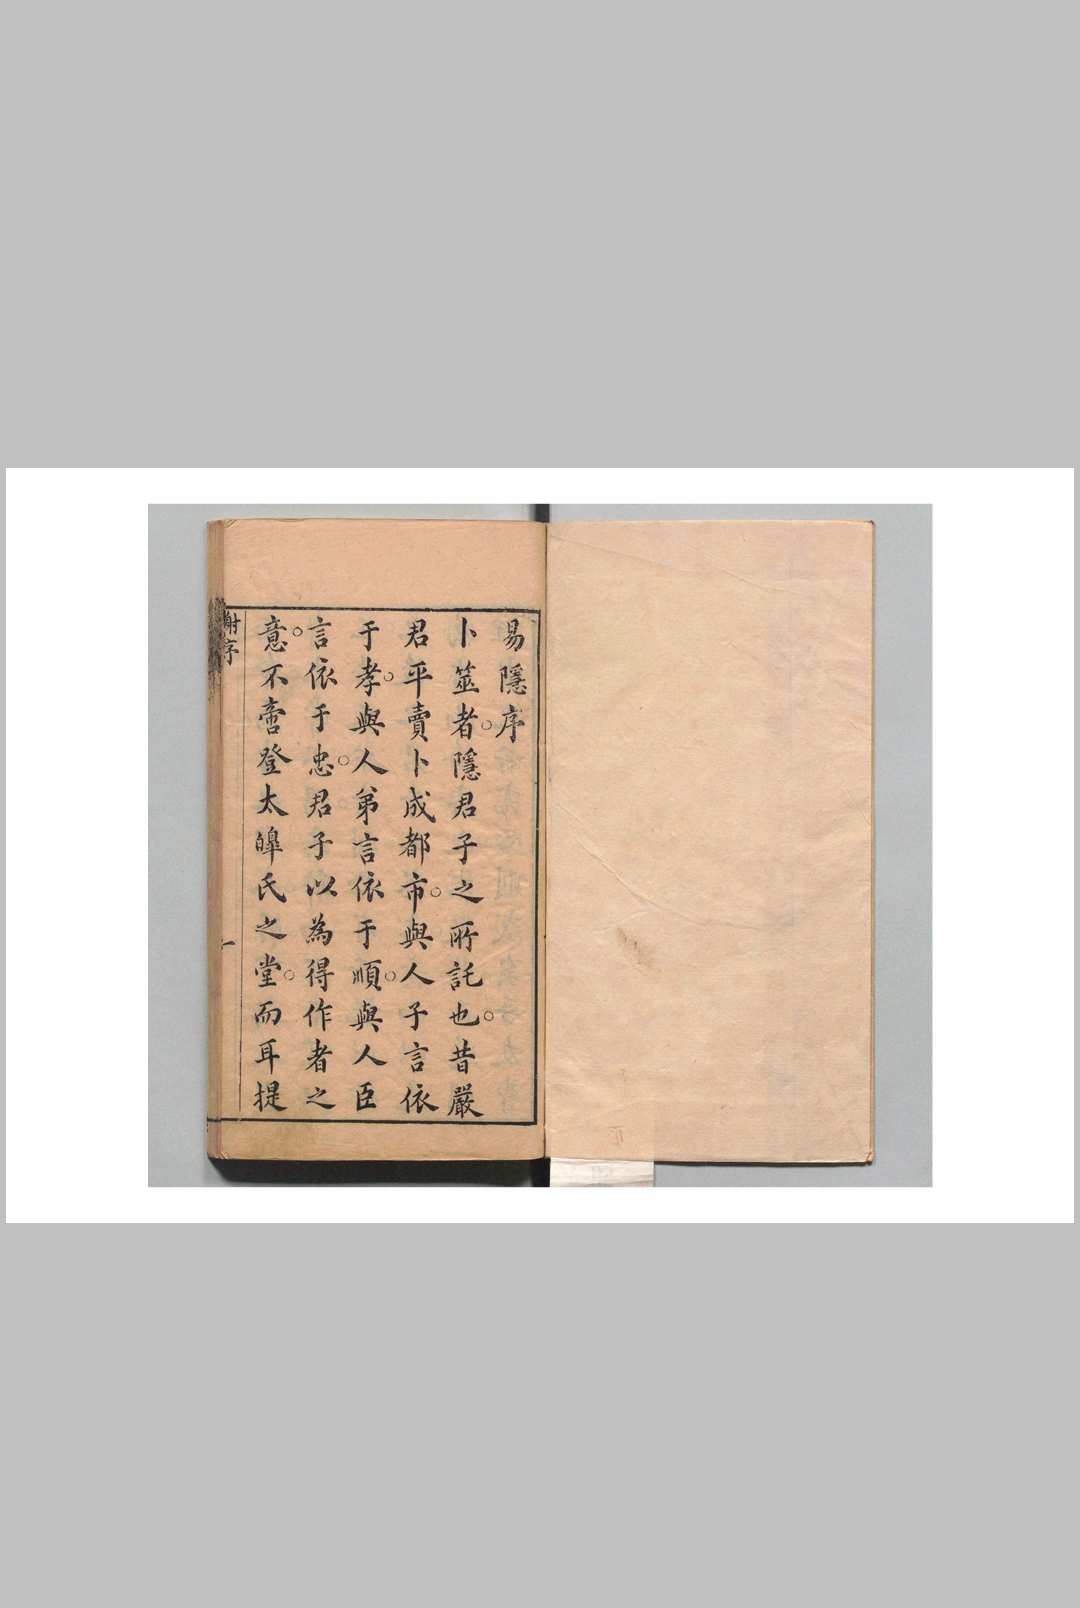 易隱序
卜筮者○隱君子之所託也○昔嚴
君平賣卜成都市○與人子言依
于孝○與人弟言依于順○與人臣
言依于忠○君子以為得作者之
意○不啻登太皡氏之堂○而耳提
謝序
一